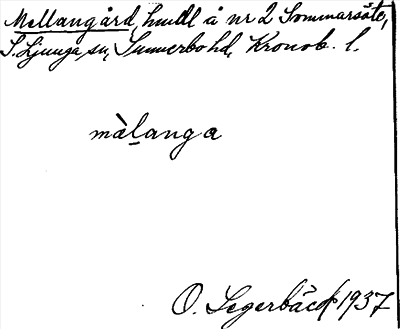 Mellangård, hmdl å nr 2 Sommarsäte,
S. Ljunga sn, Sunnerbo hd, Kronob. l.
màlanga
O. Segerbäck 1937